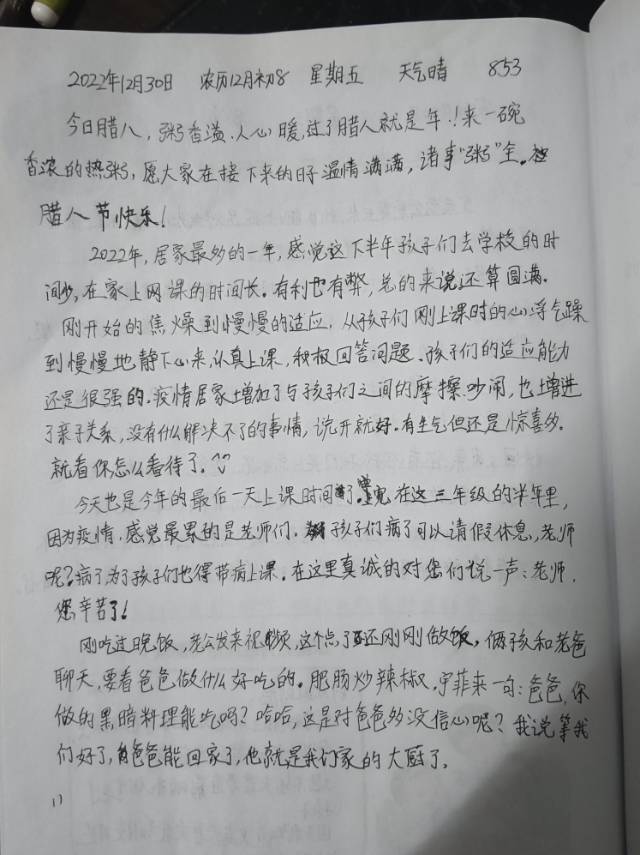 2022年12月30日 农历12月初8 星期五 天气晴 853
今日腊八，粥香溢.人心暖,过了腊八就是年.!来一碗
香浓的热粥,愿大家在接下来的日子温情满满,诸事"粥"全。
腊八节快乐!
2022年,居家最多的一年,感觉这下半年孩子们去学校的时
间少,在家上网课的时间长.有利也有弊,总的来说还算圆满.
刚开始的焦燥到慢慢的适应.从孩子们刚上课时的心浮气躁
到慢慢地静下心来,认真上课,积极回答问题.孩子们的适应能力
还是很强的.疫情居家增加了与孩子们之间的摩擦.吵闹,也增进
了亲子关系,没有什么解决不了的事情,说开就好.有生气但还是惊喜多.
就看你怎么看待了.
今天也是今年的最后一天上课时间了 在这三年级的半年里,
因为疫情.感觉最累的是老师们.孩子们病了可以请假休息,老师
呢?病了为了孩子们也得带病上课.在这里真诚的对您们说一声:老师,
您辛苦了!
刚吃过晚饭,老公发来视频,这个点了还刚刚做饭,俩孩和老爸
聊天,要看爸爸做什么好吃的.肥肠炒辣椒.宇菲来一句:爸爸,你
做的黑暗料理能吃吗?哈哈,这是对爸爸多没信心呢?我说等我
们好了,爸爸能回家了,他就是我们家的大厨了.